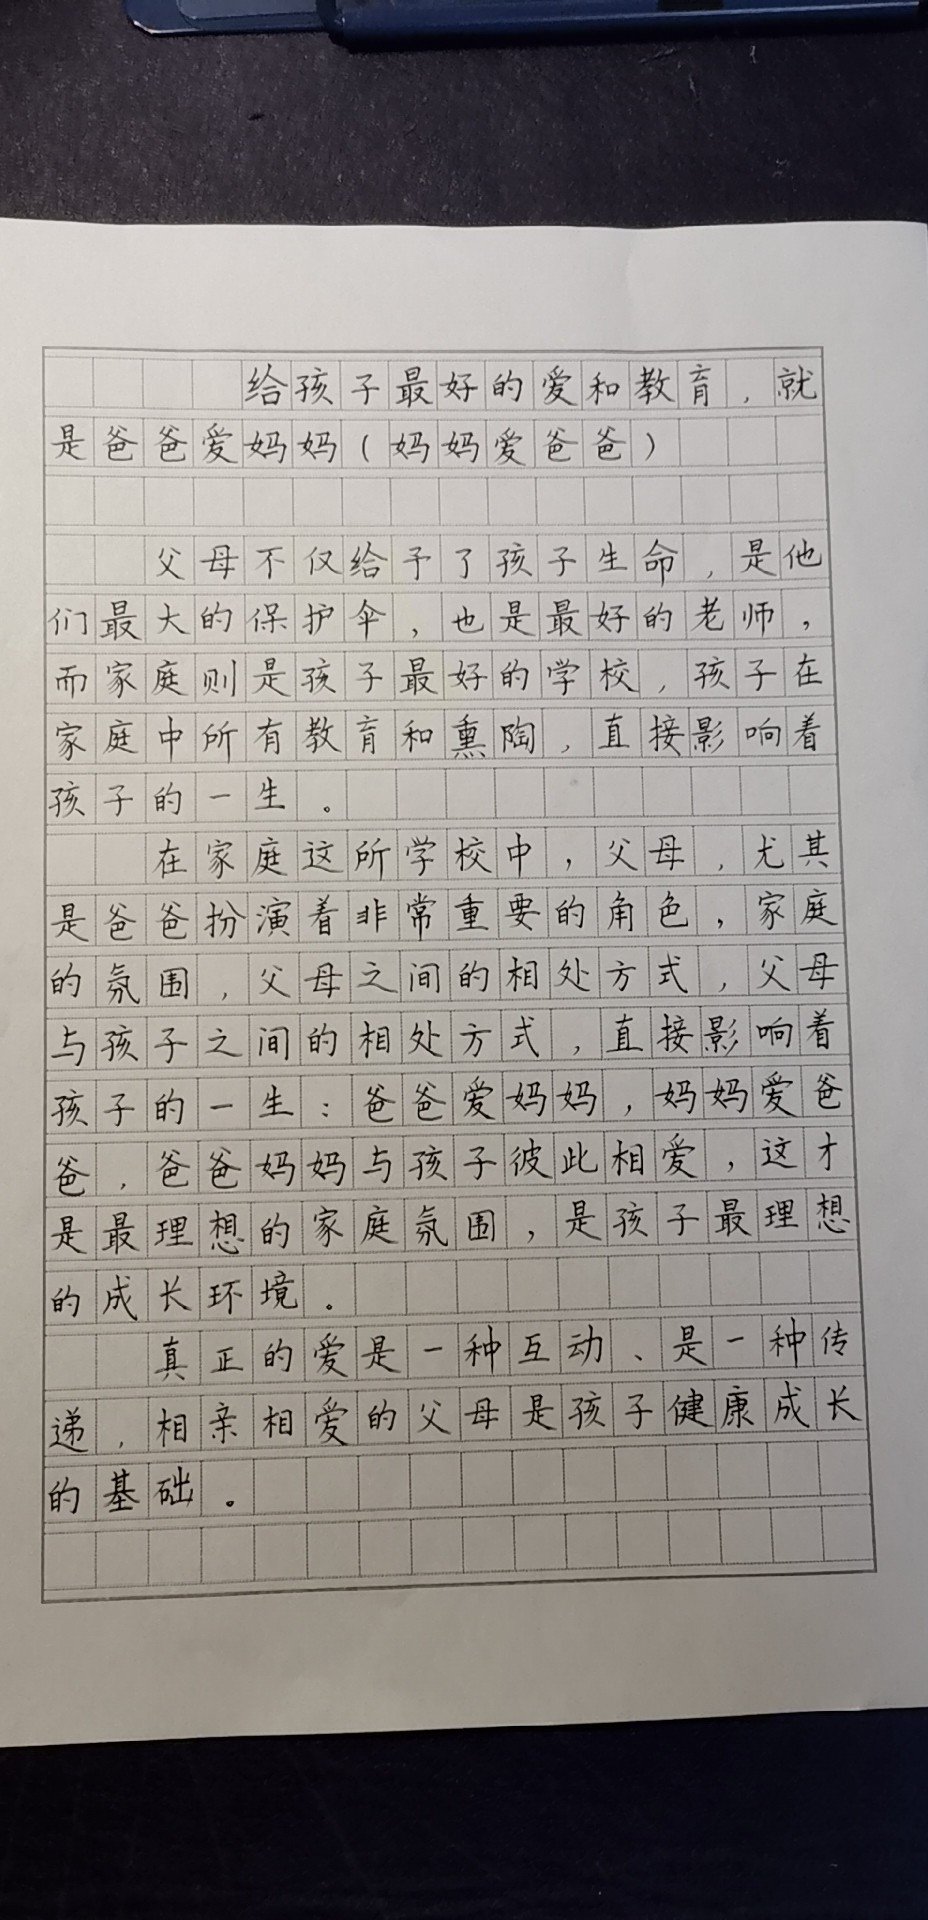 给孩子最好的爱和教育，就
是爸爸爱妈妈（妈妈爱爸爸）
父母不仅给予了孩子生命，是他
们最大的保护伞，也是最好的老师，
而家庭则是孩子最好的学校，孩子在
家庭中所有教育和熏陶，直接影响着
孩子的一生。
在家庭这所学校中，父母，尤其
是爸爸扮演着非常重要的角色，家庭
的氛围，父母之间的相处方式，父母
与孩子之间的相处方式，直接影响着
孩子的一生：爸爸爱妈妈，妈妈爱爸
爸，爸爸妈妈与孩子彼此相爱，这才
是最理想的家庭氛围，是孩子最理想
的成长环境。
真正的爱是一种互动、是一种传
递，相亲相爱的父母是孩子健康成长
的基础。